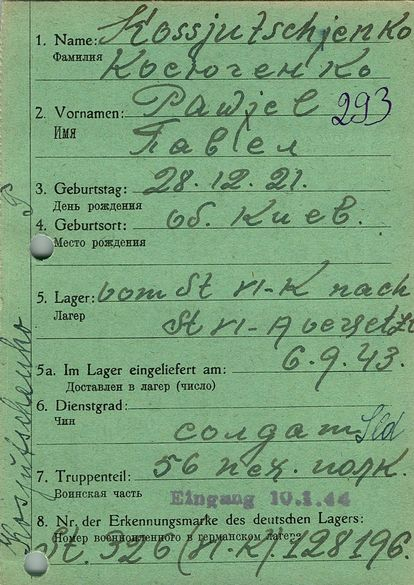 1. Name: Kossjutschjenko
Фамилия Косюченко
2. Vornamen: Pawjel 293
Имя Павел
3. Geburtstag: 28.12.21.
День рождения
4. Geburtsort: об. Киев.
Место рождения
5. Lager: vom St VI-K nach
Лагер St VI-A versetzt
5a. Im Lager eingeliefert am: 6.9.43.
Доставлен в лагер (число)
6. Dienstgrad:
Чин солдат Sld
7. Truppenteil: 56 пех. полк.
Воинская часть Eingang 10.1.44
8. Nr. der Erkennungsmarke des deutschen Lagers:
Номер военнопленного в германском лагере
St. 326 (VI-K) 128196.
Kosjutschenko P